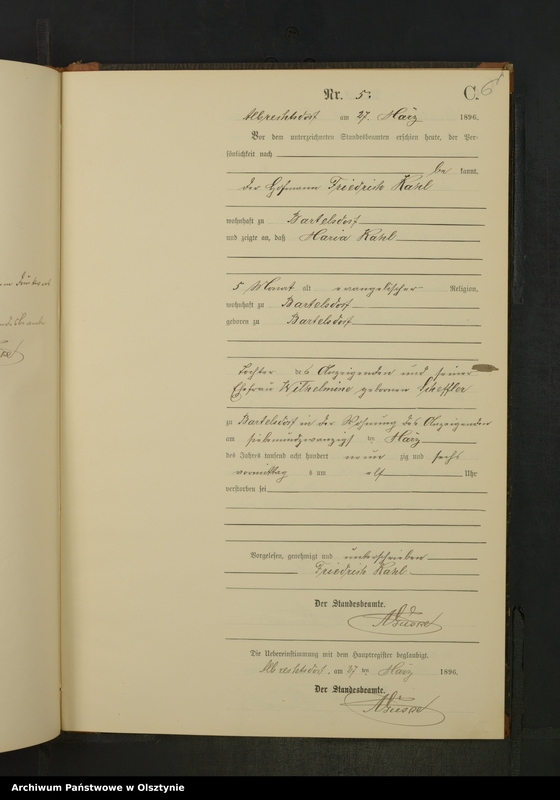 Nr. 5.
C. 6
Albrechtsdorf am 27. März 1896.
Vor dem unterzeichneten Standesbeamten erschien heute, der Per-
sönlichkeit nach
be kannt,
der Hofmann Friedrich Kahl
wohnhaft zu Bartelsdorf
und zeigte an, daß Maria Kahl
5 Monat alt evangelischer Religion,
wohnhaft zu Bartelsdorf
geboren zu Bartelsdorf
Tochter des Anzeigenden und seiner
Ehefrau Wilhelmine geborenen Scheffler
zu Bartelsdorf in der Wohnung des Anzeigenden
am siebenundzwanzigsten März
des Jahres tausend acht hundert neun zig und sechs
vormittags um elf Uhr
verstorben sei
Vorgelesen, genehmigt und unterschrieben
Friedrich Kahl
Der Standesbeamte.
Die Uebereinstimmung mit dem Hauptregister beglaubigt.
Albrechtsdorf, am 27 ten März 1896.
Der Standesbeamte.
Archiwum Państwowe w Olsztynie